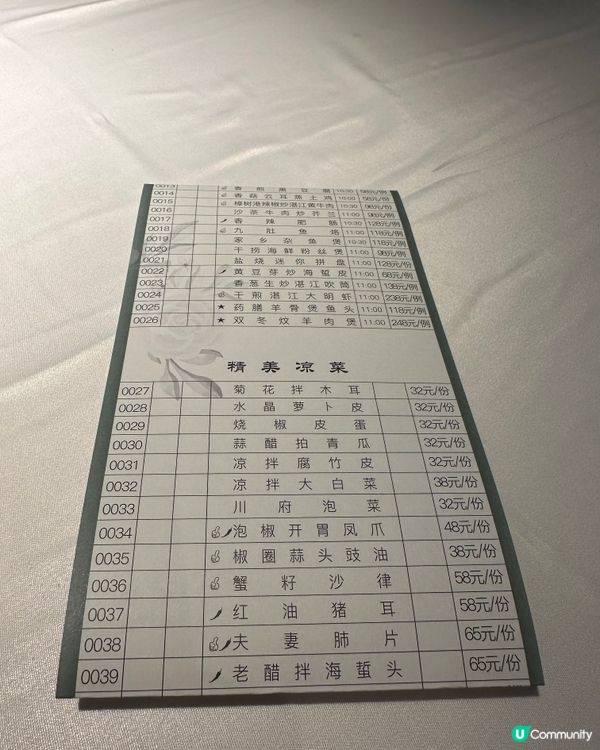 0013 香煎黑豆腸 10:30 58元/份
0014 香菇云耳蒸土鸡 10:00 58元/份
0015 樟树港辣椒炒湛江黄牛肉 10:30 98元/份
0016 沙茶牛肉炒芥兰 11:00 98元/例
0017 香辣肥腸 11:00 128元/例
0018 九肚鱼烙 11:00 118元/例
0019 家乡杂鱼煲 10:30 118元/例
0020 干捞海鲜粉丝煲 11:00 98元/例
0021 盐烧迷你拼盘 11:00 128元/份
0022 黄豆芽炒海蜇皮 11:00 68元/例
0023 香葱生炒湛江吹筒 11:00 138元/例
0024 干煎湛江大明虾 11:00 238元/例
0025 ★ 药膳羊骨煲鱼头 11:00 118元/例
0026 ★ 双冬炆羊肉煲 11:00 248元/例
精美凉菜
0027 菊花拌木耳 32元/份
0028 水晶萝卜皮 32元/份
0029 烧椒皮蛋 32元/份
0030 蒜醋拍青瓜 32元/份
0031 凉拌腐竹皮 32元/份
0032 凉拌大白菜 38元/份
0033 川府泡菜 32元/份
0034 泡椒开胃凤爪 48元/份
0035 椒圈蒜头豉油 38元/份
0036 蟹籽沙律 58元/份
0037 红油猪耳 58元/份
0038 夫妻肺片 65元/份
0039 老醋拌海蜇头 65元/份
U Community